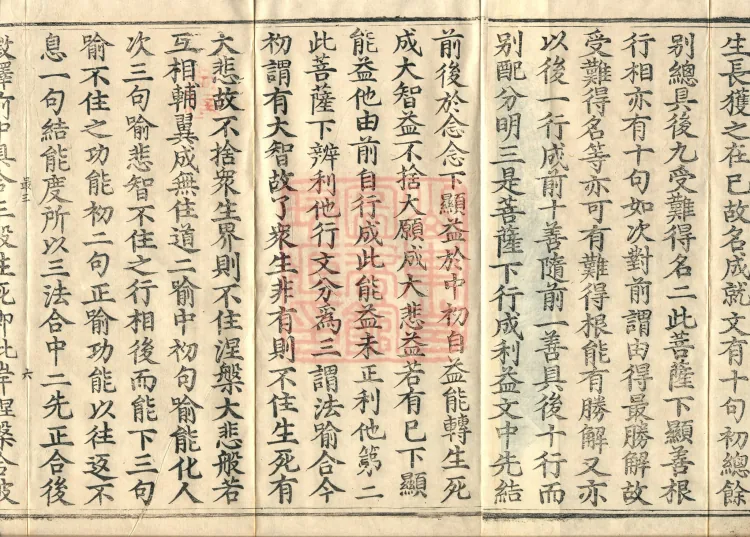 生長獲之在已故名成就文有十句初總餘
別總具後九受難得名二此菩薩下顯善根
行相亦有十句如次對前謂由得最勝解故
受難得名等亦可有難得根能有勝解又亦
以後一行成前十善隨前一善具後十行而
別配分明三是菩薩下行成利益文中先結
前後於念念下顯益於中初自益能轉生死
成大智益不捨大願成大悲益若有已下顯
能益他由前自行成此能益未正利他第二
此菩薩下辨利他行文分為三謂法喻合今
初謂有大智故了衆生非有則不住生死有
大悲故不捨衆生界則不住涅槃大悲般若
互相輔翼成無住道二喻中初句喻能化人
次三句喻悲智不住之行相後而能下三句
喻不住之功能初二句正喻功能以往返不
息一句結能度所以三法合中二先正合後
六